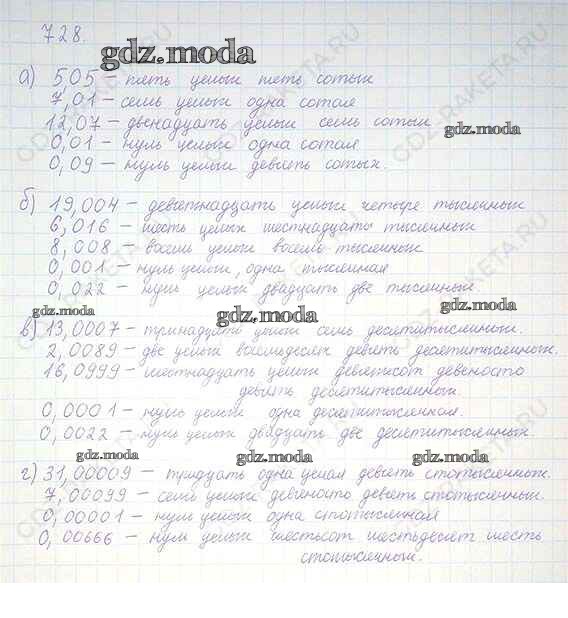 728.
gdz.moda
а) 5,05 – пять целых пять сотых
7,01 – семь целых одна сотая
12,07 – двенадцать целых семь сотых
gdz.moda
0,01 – нуль целых одна сотая
0,09 – нуль целых девять сотых.
б) 19,004 – девятнадцать целых четыре тысячных
6,016 – шесть целых шестнадцать тысячных
8,008 – восемь целых восемь тысячных
0,001 – нуль целых, одна тысячная
0,022 – нуль целых двадцать две тысячных.
gdz.moda gdz.moda gdz.moda
в) 13,0007 – тринадцать целых семь десятитысячных.
2,0089 – две целых восемьдесят девять десятитысячных.
16,0999 – шестнадцать целых девятьсот девяносто
девять десятитысячных.
0,0001 – нуль целых одна десятитысячная.
0,0022 – нуль целых двадцать две десятитысячных.
gdz.moda gdz.moda gdz.moda
г) 31,00009 – тридцать одна целая девять стотысячных.
7,00099 – семь целых девяносто девять стотысячных.
0,00001 – нуль целых одна стотысячная
0,00666 – нуль целых шестьсот шестьдесят шесть
стотысячных.
GDZ-RAKETA.RU